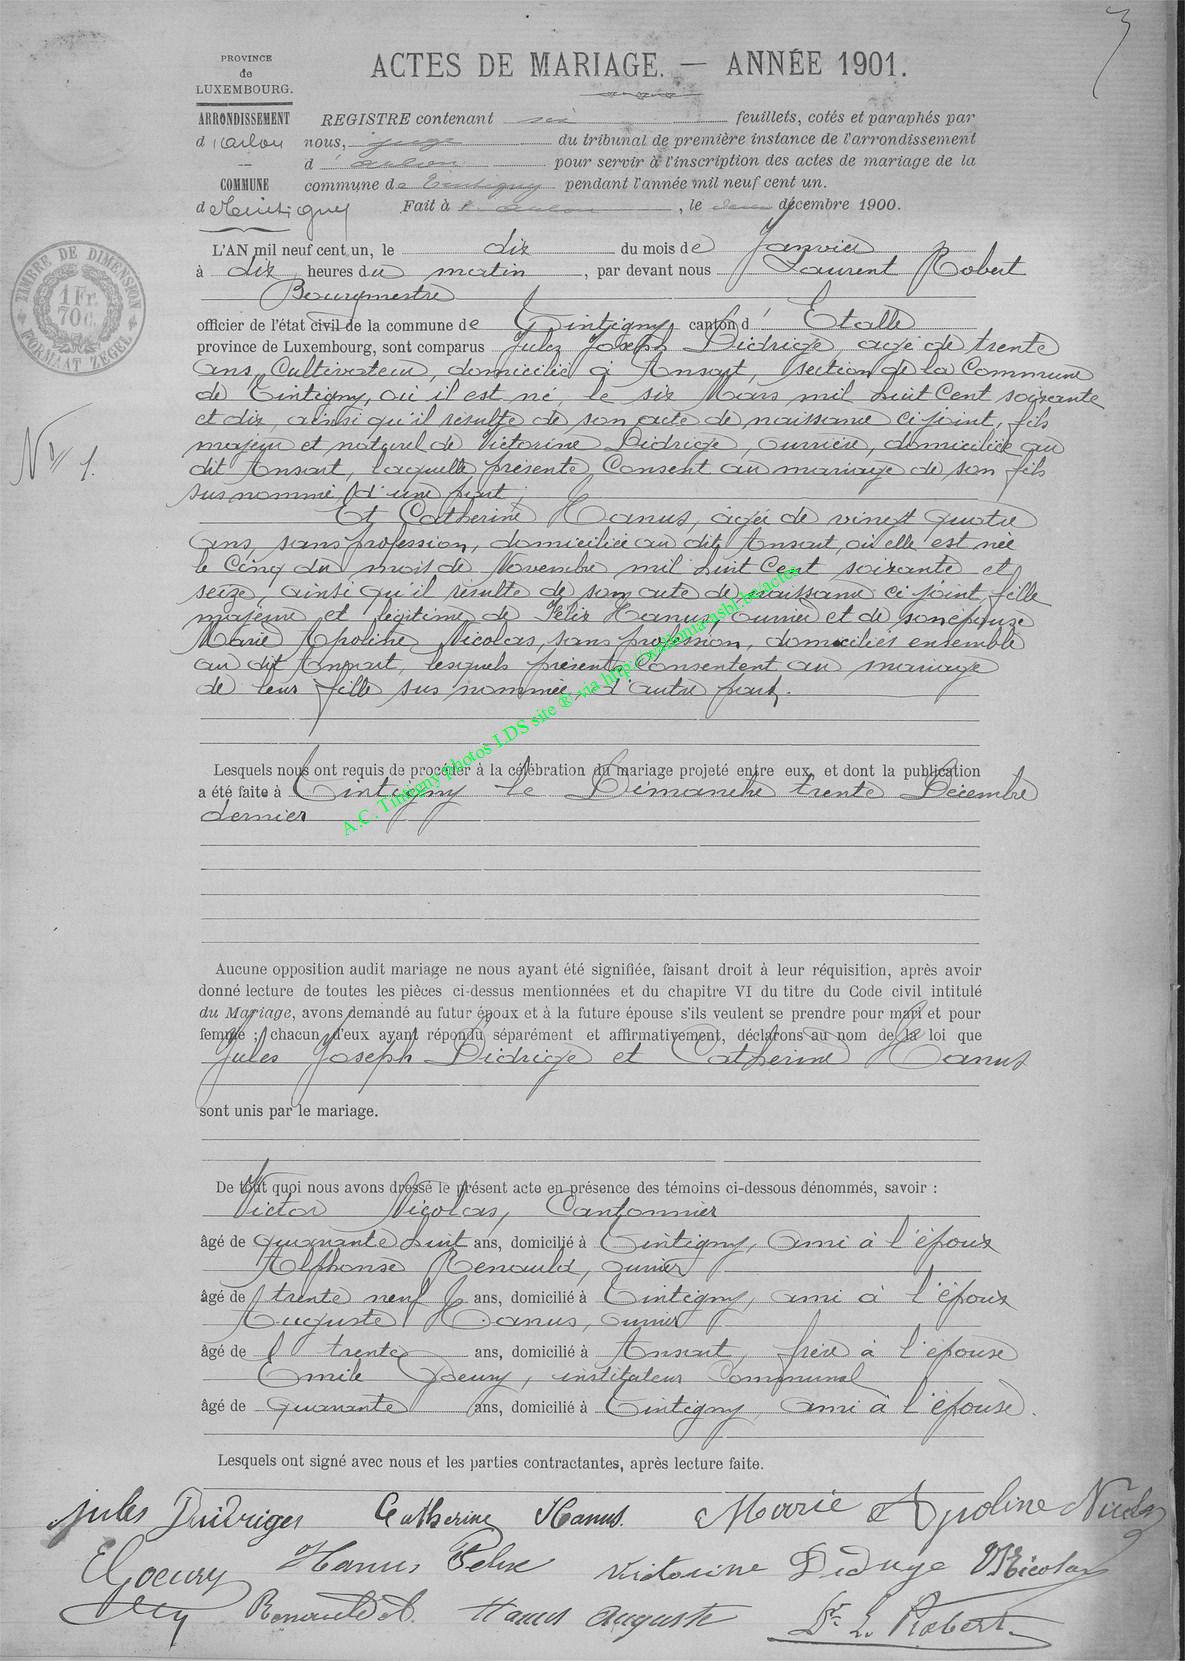 3
PROVINCE
de
LUXEMBOURG.
ACTES DE MARIAGE. — ANNÉE 1901.
ARRONDISSEMENT
d'Arlon
COMMUNE
de Tintigny
REGISTRE contenant six feuillets, cotés et paraphés par
nous, juge du tribunal de première instance de l'arrondissement
d'Arlon pour servir à l'inscription des actes de mariage de la
commune de Tintigny pendant l'année mil neuf cent un.
Fait à Arlon, le décembre 1900.
TIMBRE DE DIMENSION
1 Fr.
70 c.
FORMAAT ZEGEL
No 1.
L'AN mil neuf cent un, le dix du mois de Janvier
à dix heures du matin, par devant nous Laurent Robert
Bourgmestre
officier de l'état civil de la commune de Tintigny canton d'Etalle
province de Luxembourg, sont comparus Jules Joseph Didrige, agé de trente
ans, Cultivateur, domicilié à Ansart, section de la Commune
de Tintigny, où il est né, le six Mars mil huit Cent soixante
et dix, ainsi qu'il résulte de son acte de naissance ci joint, fils
majeur et naturel de Victorine Didrige, ouvrière, domiciliée au
dit Ansart, laquelle présente Consent au mariage de son fils
sus nommé, d'une part;
Et Catherine Hanus, agée de vingt quatre
ans, sans profession, domiciliée au dit Ansart, où elle est née
le Cinq du mois de Novembre mil huit Cent soixante et
seize, ainsi qu'il résulte de son acte de naissance ci joint, fille
majeure et légitime de Félix Hanus, ouvrier et de son épouse
Marie Apoline Nicolas, sans profession, domiciliés ensemble
au dit Ansart, lesquels présents Consentent au mariage
de leur fille sus nommée, d'autre part.
A.C. Tintigny photos LDS site ® via http://wallonia-asbl-be/actes
Lesquels nous ont requis de procéder à la célébration du mariage projeté entre eux, et dont la publication
a été faite à Tintigny le Dimanche trente Décembre
dernier
Aucune opposition audit mariage ne nous ayant été signifiée, faisant droit à leur réquisition, après avoir
donné lecture de toutes les pièces ci-dessus mentionnées et du chapitre VI du titre du Code civil intitulé
du Mariage, avons demandé au futur époux et à la future épouse s'ils veulent se prendre pour mari et pour
femme ; chacun d'eux ayant répondu séparément et affirmativement, déclarons au nom de la loi que
Jules Joseph Didrige et Catherine Hanus
sont unis par le mariage.
De tout quoi nous avons dressé le présent acte en présence des témoins ci-dessous dénommés, savoir :
Victor Nicolas, Cantonnier
âgé de quarante huit ans, domicilié à Tintigny, ami à l'époux
Alphonse Renauld, ouvrier
âgé de trente neuf ans, domicilié à Tintigny, ami à l'époux
Auguste Hanus, ouvrier
âgé de trente ans, domicilié à Ansart, frère à l'épouse
Emile Goeury, instituteur Communal
âgé de quarante ans, domicilié à Tintigny, ami à l'épouse.
Lesquels ont signé avec nous et les parties contractantes, après lecture faite.
Jules Catherine Hanus. Marie Apoline Nicolas
E Goeury Hanus Felix Victorine Didrige V Nicolas
Renauld A. Hanus Auguste Dr L. Robert.